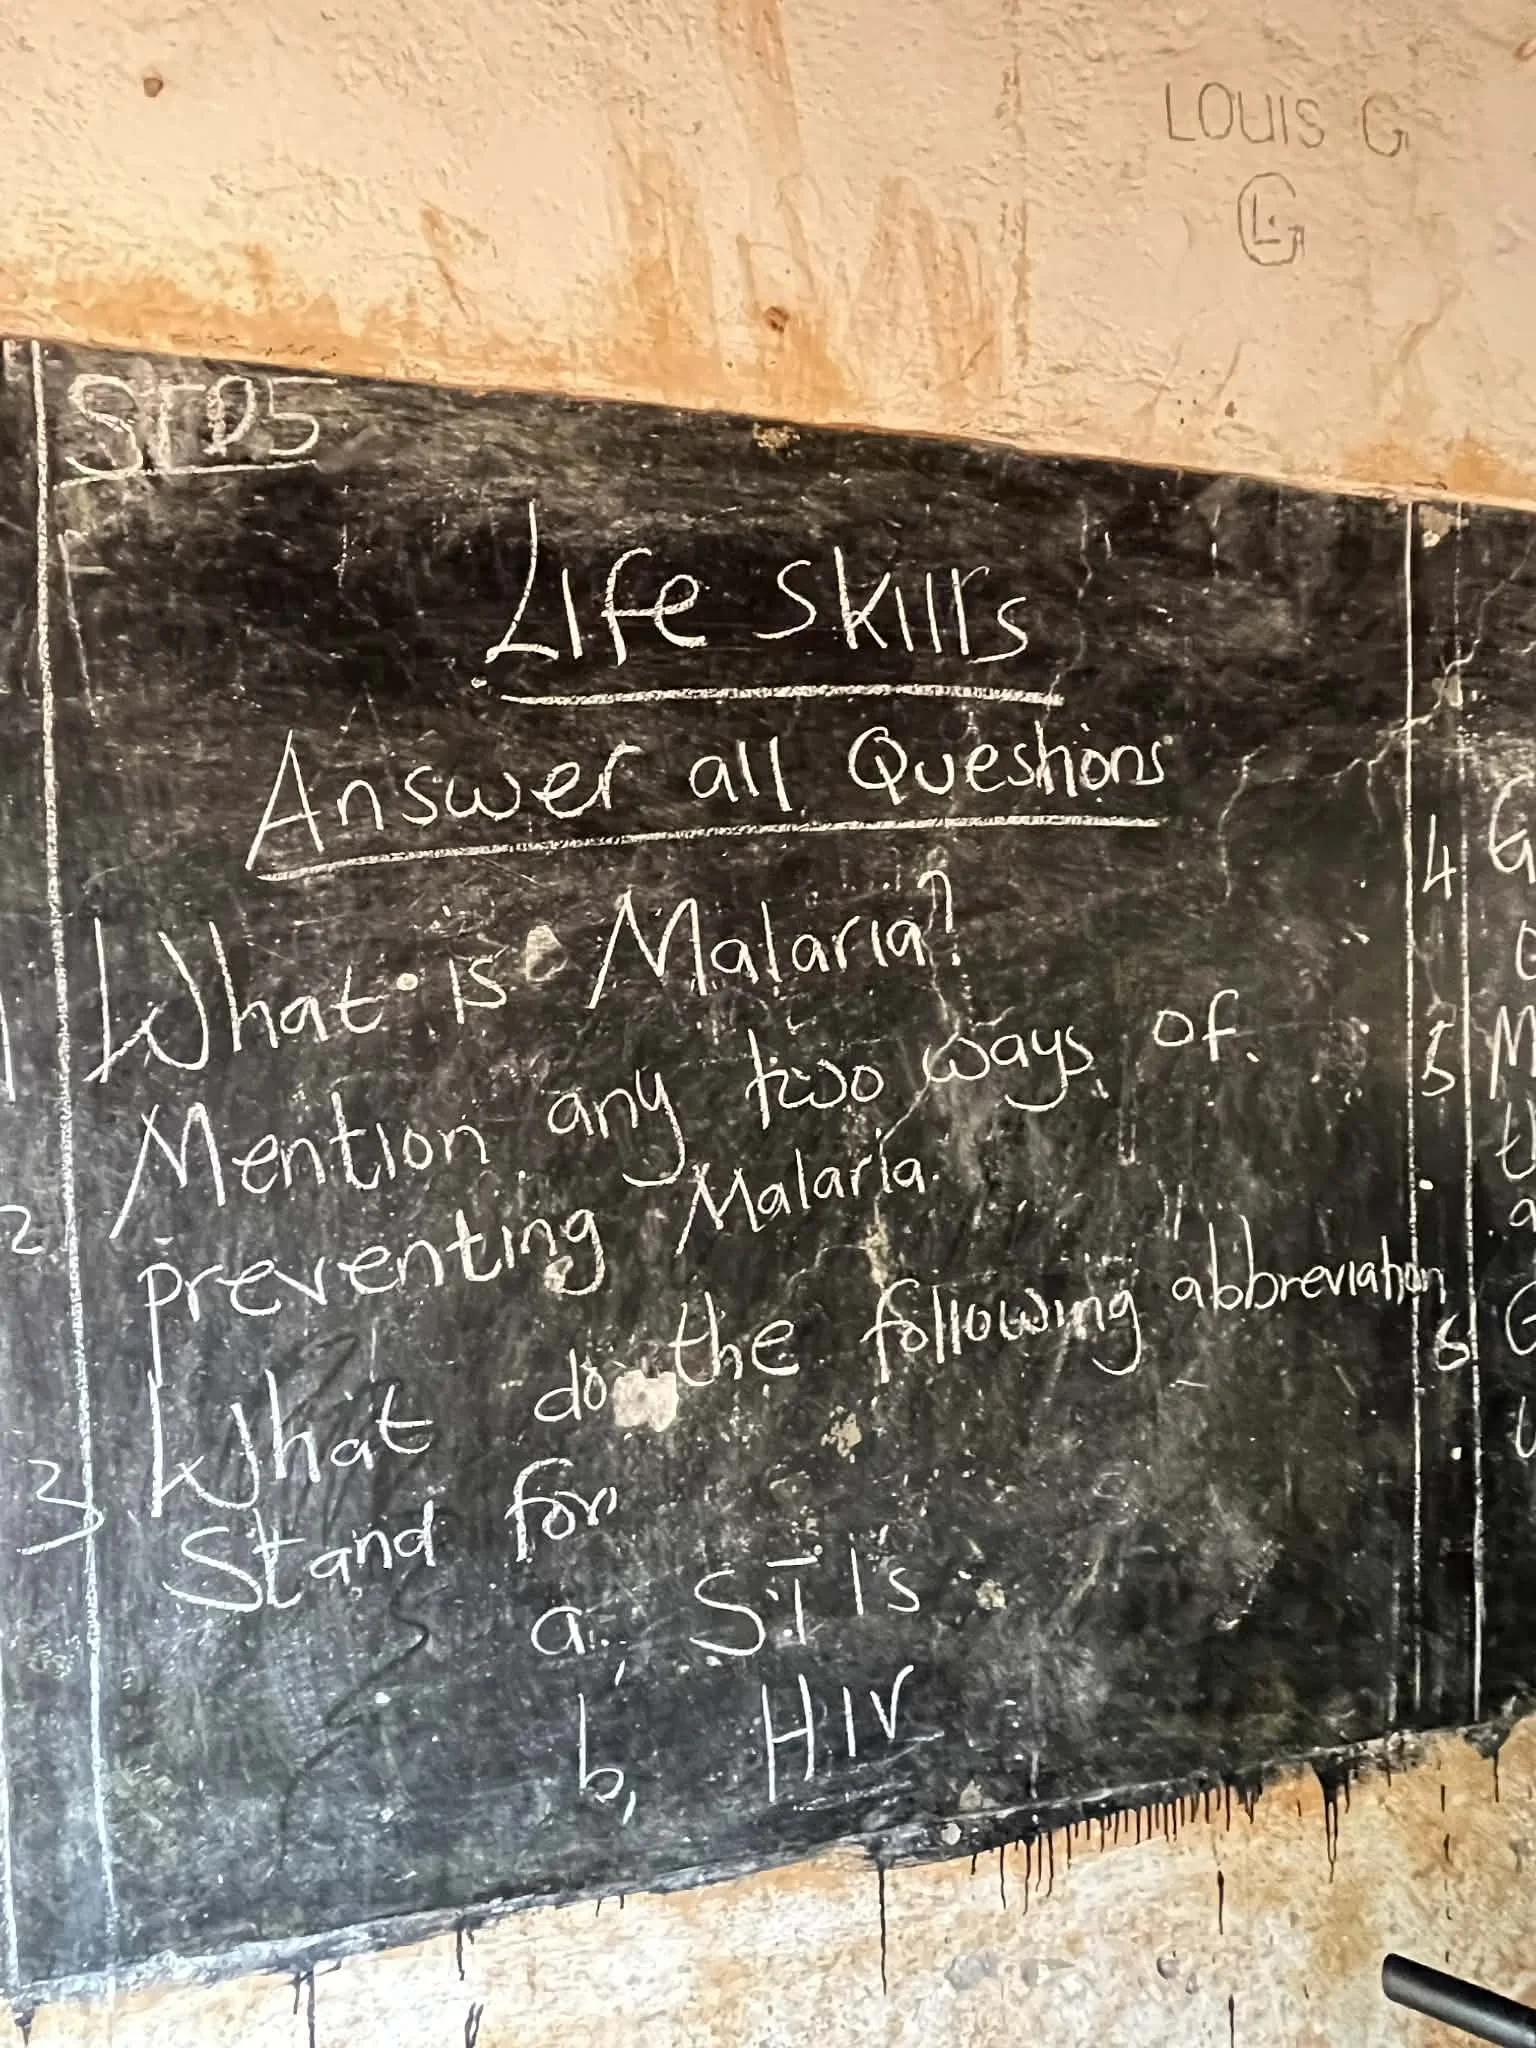 LOUIS G
LG
STD5
Life skills
Answer all Questions
1 What is Malaria?
2. Mention any two ways of
preventing Malaria.
3 What do the following abbreviation
Stand for
a. STIs
b, HIV
4 G
5 M
6 G